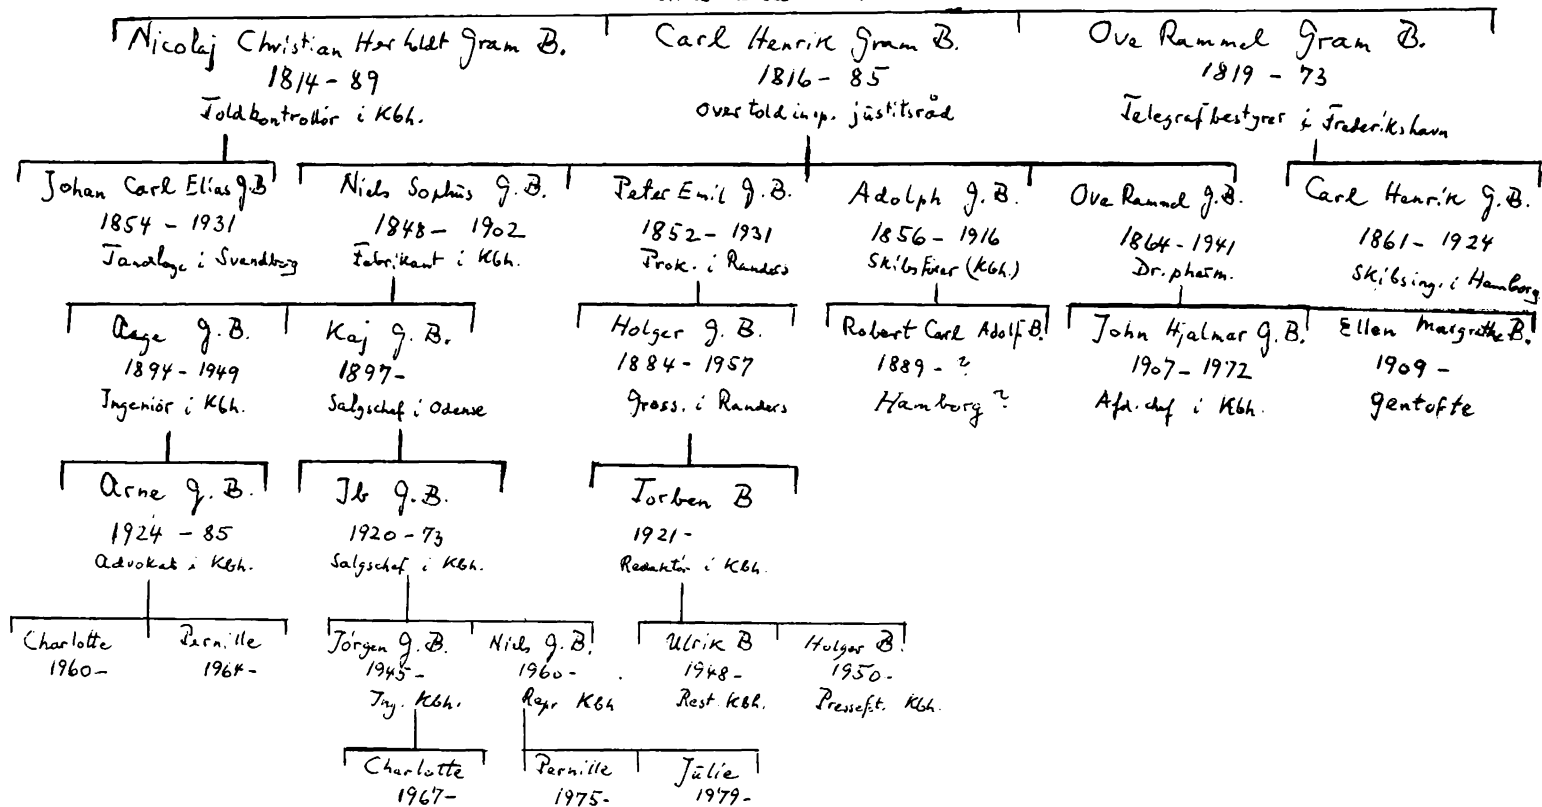 Nicolaj Christian Herholdt Gram B.
1814 - 89
Toldkontrollör i Kbh.
Carl Henrik Gram B.
1816 - 85
Overtoldinsp. justitsråd
Ove Rammel Gram B.
1819 - 73
Telegrafbestyrer i Frederikshavn
Johan Carl Elias G.B
1854 - 1931
Tandlæge i Svendborg
Niels Sophus G.B.
1848 - 1902
Fabrikant i Kbh.
Peter Emil G.B.
1852 - 1931
Prok. i Randers
Adolph G.B.
1856 - 1916
Skibsfører (Kbh.)
Ove Rammel G.B.
1864 - 1941
Dr. pharm.
Carl Henrik G.B.
1861 - 1924
Skibsing. i Hamborg
Aage G.B.
1894 - 1949
Ingeniör i Kbh.
Kaj G.B.
1897-
Salgschef i Odense
Holger G.B.
1884 - 1957
Gross. i Randers
Robert Carl Adolf B.
1889 - ?
Hamborg ?
John Hjalmar G.B.
1907 - 1972
Afd. chef i Kbh.
Ellen Margrethe B.
1909 -
Gentofte
Arne G.B.
1924 - 85
Advokat i Kbh.
Ib G.B.
1920 - 73
Salgschef i Kbh.
Torben B
1921-
Redaktör i Kbh.
Charlotte
1960-
Pernille
1964-
Jörgen G.B.
1945-
Ing. Kbh.
Niels G.B.
1960-
Repr Kbh
Ulrik B
1948-
Rest. Kbh.
Holger B.
1950-
Pressef.t. Kbh.
Charlotte
1967-
Pernille
1975-
Julie
1979-